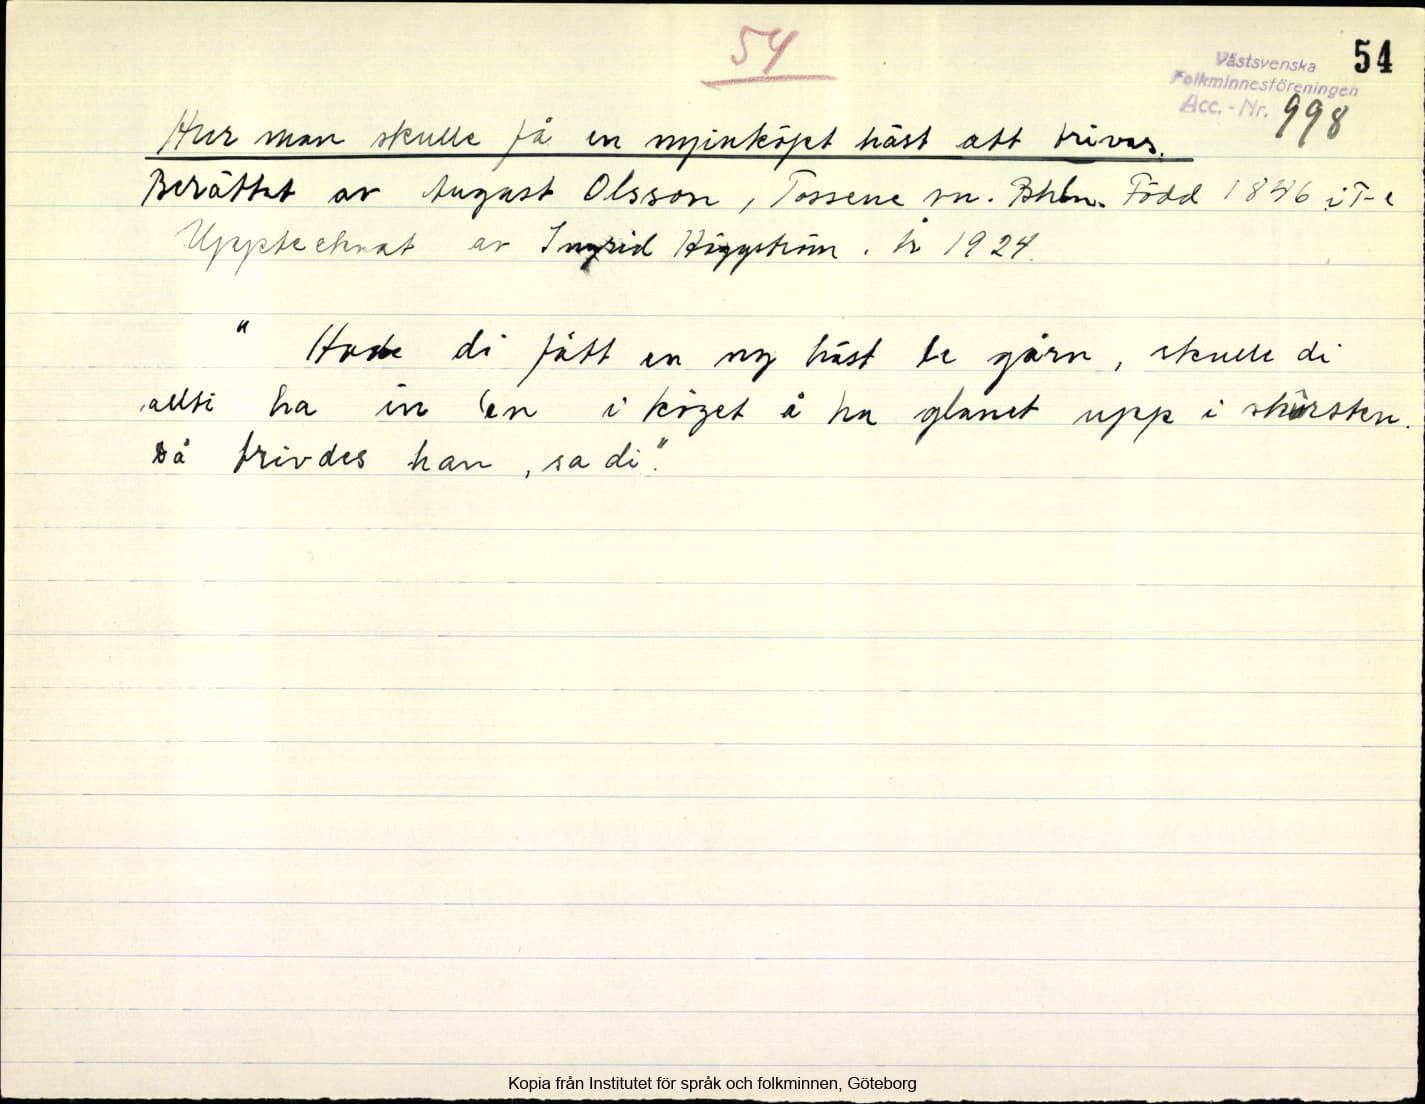 54
54
Västsvenska
Folkminnesföreningen
Acc. - Nr. 998
Hur man skulle få en nyinköpt häst att trivas.
Berättat av August Olsson, Tossene sn. Bhln. Född 1846 i T-e
Upptecknat av Ingrid Häggström. År 1924.
" Hade di fått en ny häst te gårn, skulle di
allti ha in 'en i köket å ha glanet upp i skörsten.
Då trivdes han, sa di".
Kopia från Institutet för språk och folkminnen, Göteborg